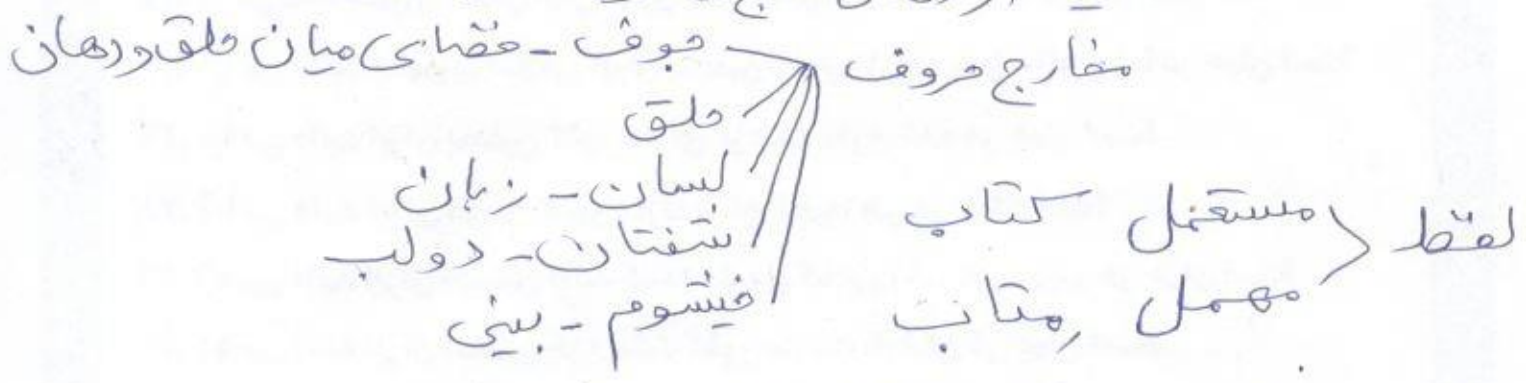 مخارج حروف جوف - فضای میان حلق و دهان
حلق
لسان - زبان
شفتان - دولب
خیشوم - بینی
لفظ
مستعمل کتاب
مهمل متاب